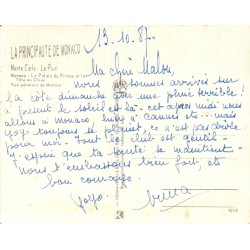 LA PRINCIPAUTÉ DE MONACO
13.10.87.
Monte Carlo - Le Port
Monaco - Le Palais du Prince et la
Tête du Chien
Vue générale de Monaco
Ma chère Malou,
Nous sommes arrivés sur
la côte dimanche avec une pluie terrible!
à présent le soleil est là - cet après midi nous
allons à monaco, hier à cannes etc... mais
yoyo toujours se plaint, ce n'est pas drôle
pour moi - Tout le club est gentil -
j'espère que ta santé se maintient -
nous t'embrassons bien fort, et
bon courage.
yoyo.